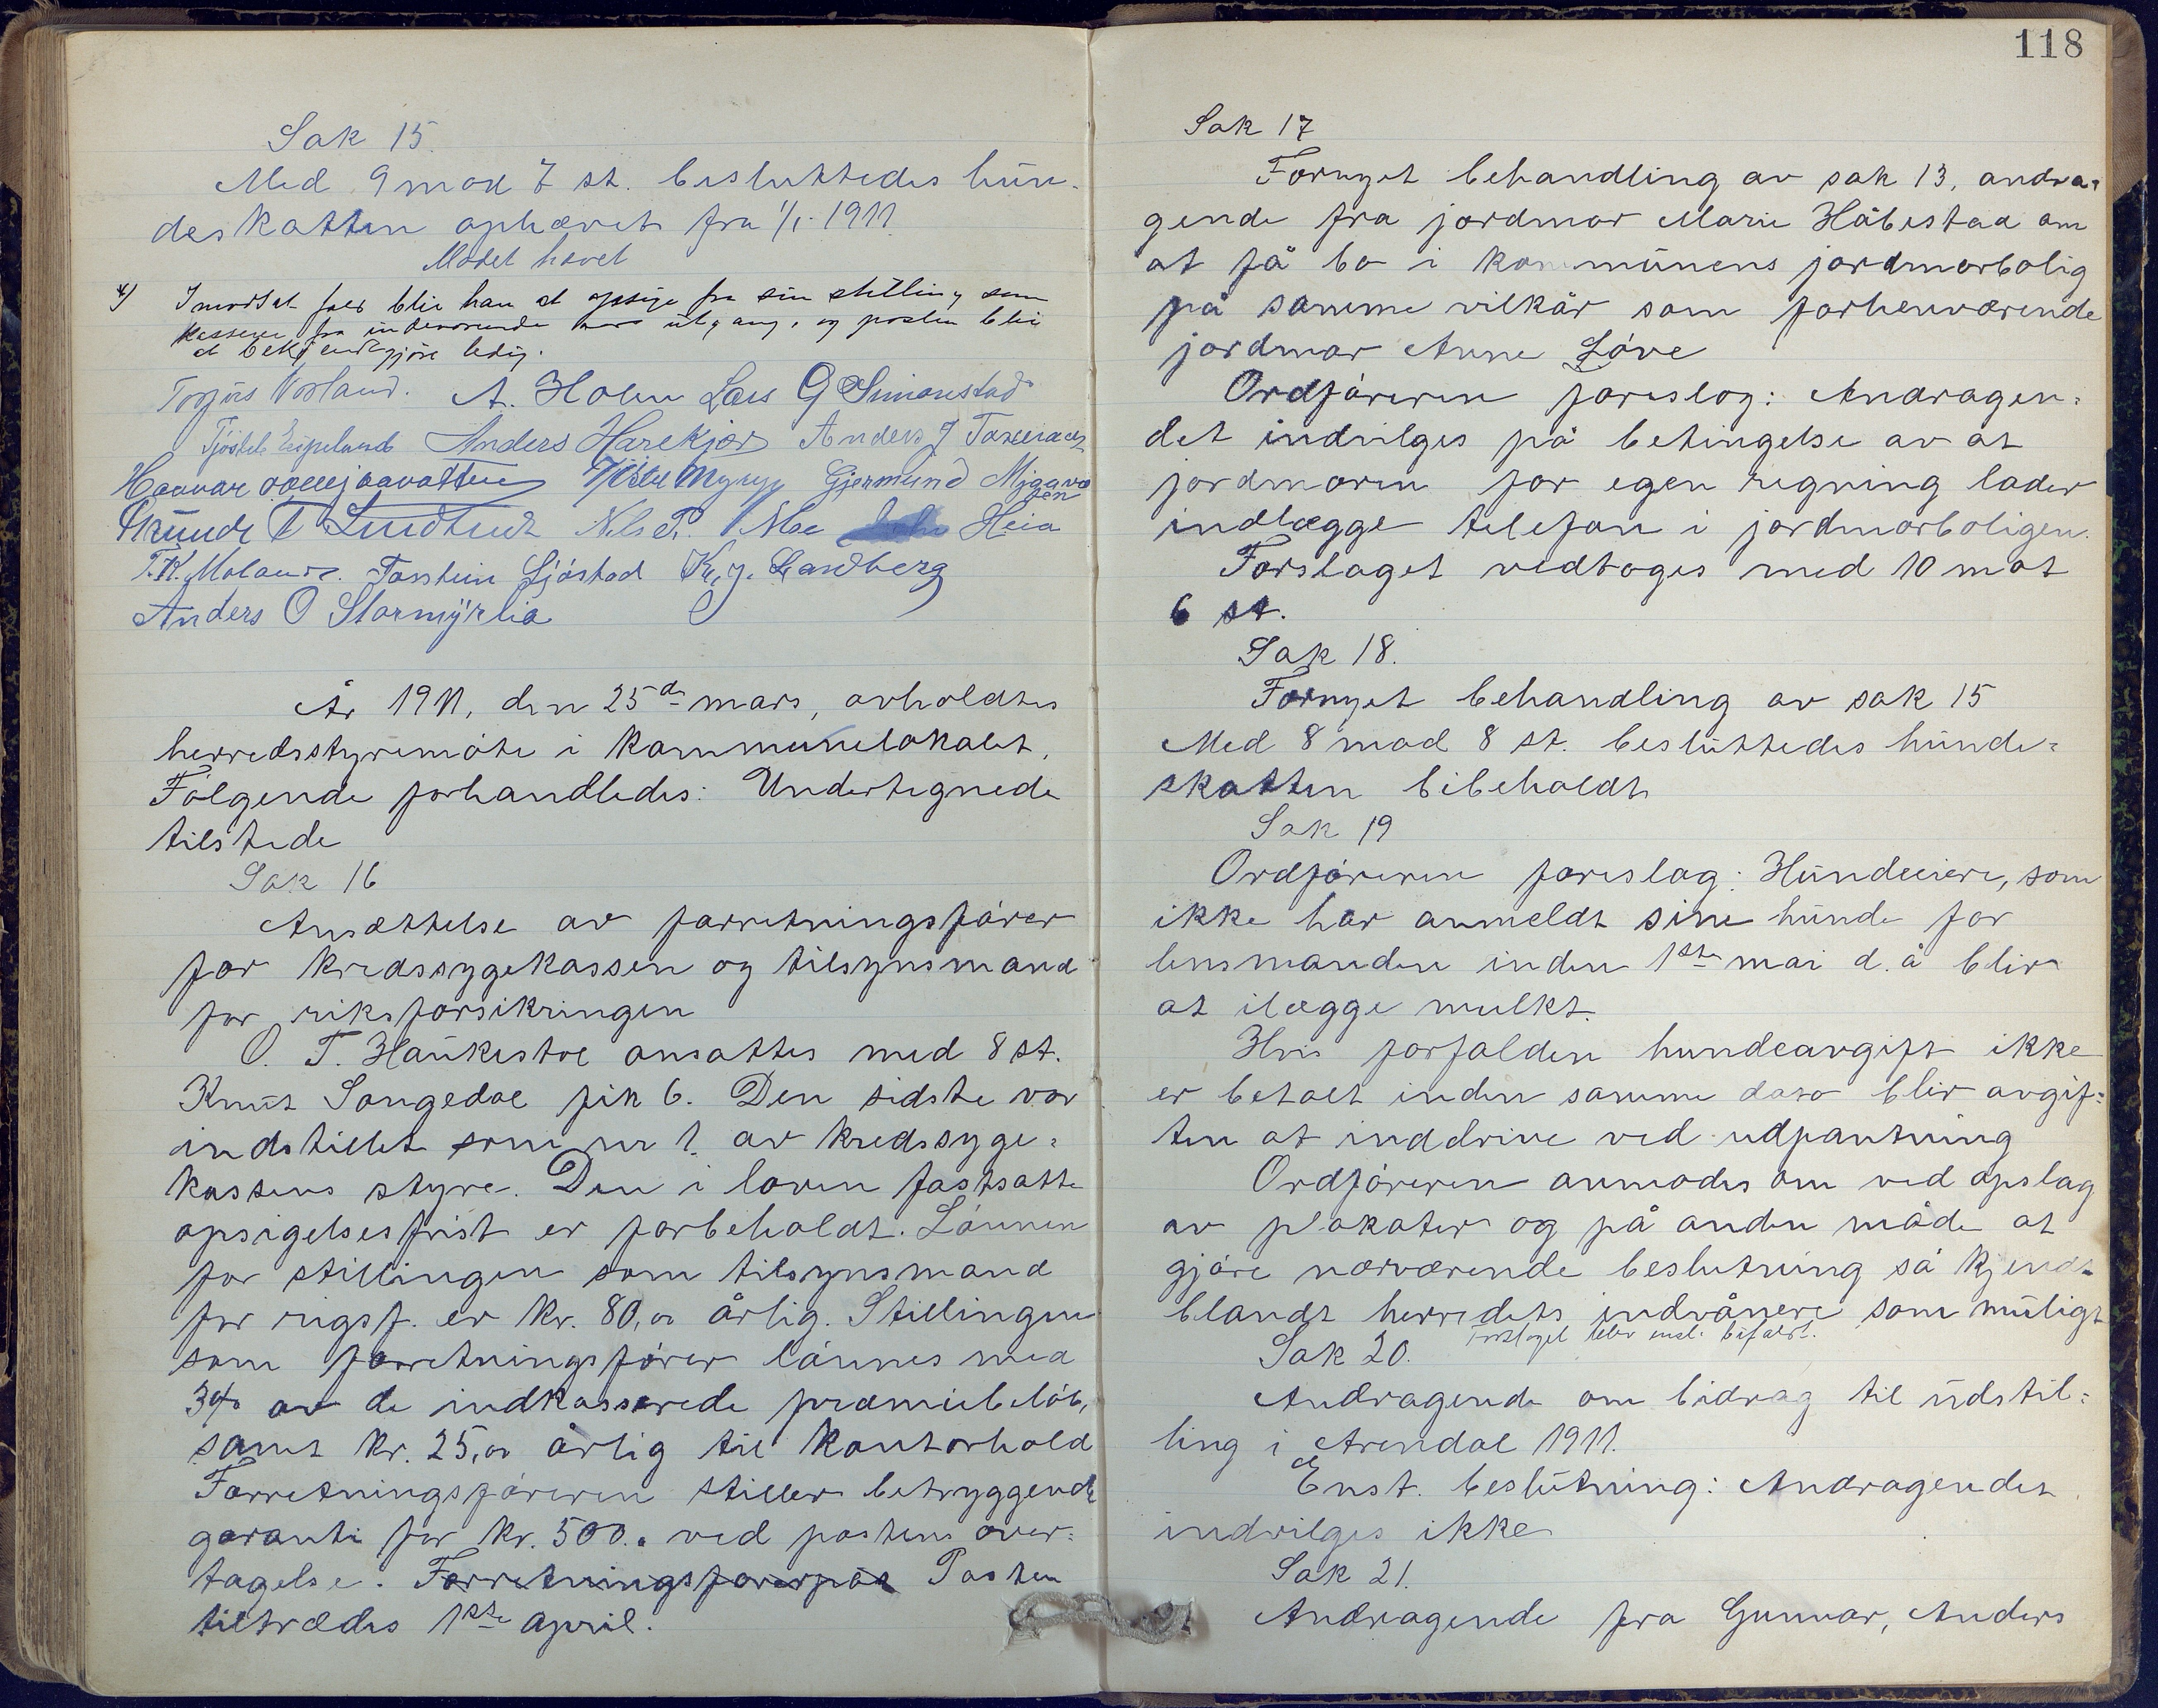 Sak 15.
Med 9 mod 7 st. besluttedes hun-
deskatten ophævet fra 1/1 1911.
Møtet hævet
4) I modsat fald blir han at opsige fra sin stilling som
kasserer fra indeværende aars utgang, og posten blir
at bekjendtgjøre ledig.
Torjus Vorland. A. Holm Lars G Simonstad
Tjöstel Espelund Anders Harekjær Anders J
Havvar Tjöstel Mykys Gjermund
T Nils P. Moe Heia
T.K. Moland. Torstein Sjöstad K. J. Sandberg
Anders O Stormyrlia
År 1911, den 25de mars, avholdtes
herredsstyremöte i kommunelokalet.
Fölgende forhandledes: Undertegnede
tilstede
Sak 16
Ansættelse av forretningsförer
for kredssygekassen og tilsynsmand
for riksforsikringen
O. T. Haukestöl ansattes med 8 st.
Knut Songedal fik 6. Den sidste var
indstillet som nr 1. av kredssyge=
kassens styre. Den i loven fastsatte
opsigelsesfrist er forbeholdt. Lönnen
for stillingen som tilsynsmand
for rigsf. er kr. 80,00 årlig. Stillingen
som forretningsförer lönnes med
3% av de indkasserede præmiebelöb,
samt kr. 25,00 årlig til kontorhold
Forretningsföreren stiller betryggende
garanti for kr. 500.- ved postens over=
tagelse. Forretningsförerpos Posten
tiltrædes 1ste april.
118
Sak 17
Fornyet behandling av sak 13, andra=
gende fra jordmor Marie Håbestad om
at få bo i kommunens jordmorbolig
på samme vilkår som forhenværende
jordmor Anne Löve
Ordföreren foreslog: Andragen=
det indvilges på betingelse av at
jordmoren for egen regning lader
indlægge telefon i jordmorboligen.
Forslaget vedtoges med 10 mot
6 st.
Sak 18.
Fornyet behandling av sak 15
Med 8 mod 8 st. besluttedes hunde=
skatten bibeholdt
Sak 19
Ordföreren foreslog: Hundeeiere, som
ikke har anmeldt sine hunde for
lensmanden inden 1ste mai d. å blir
at ilægge mulkt.
Hvis forfalden hundeavgift ikke
er betalt inden samme dato blir avgif=
ten at inddrive ved udpantning
Ordföreren anmodes om ved opslag
av plakater og på anden måde at
gjöre nærværende beslutning så kjendt
blandt herredets indvånere som muligt
Forslaget blev enst. bifaldt.
Sak 20.
Andragende om bidrag til udstil=
ling i Arendal 1911.
Enst. beslutning: Andragendet
indvilges ikke
Sak 21.
Andragende fra Gunnar, Anders